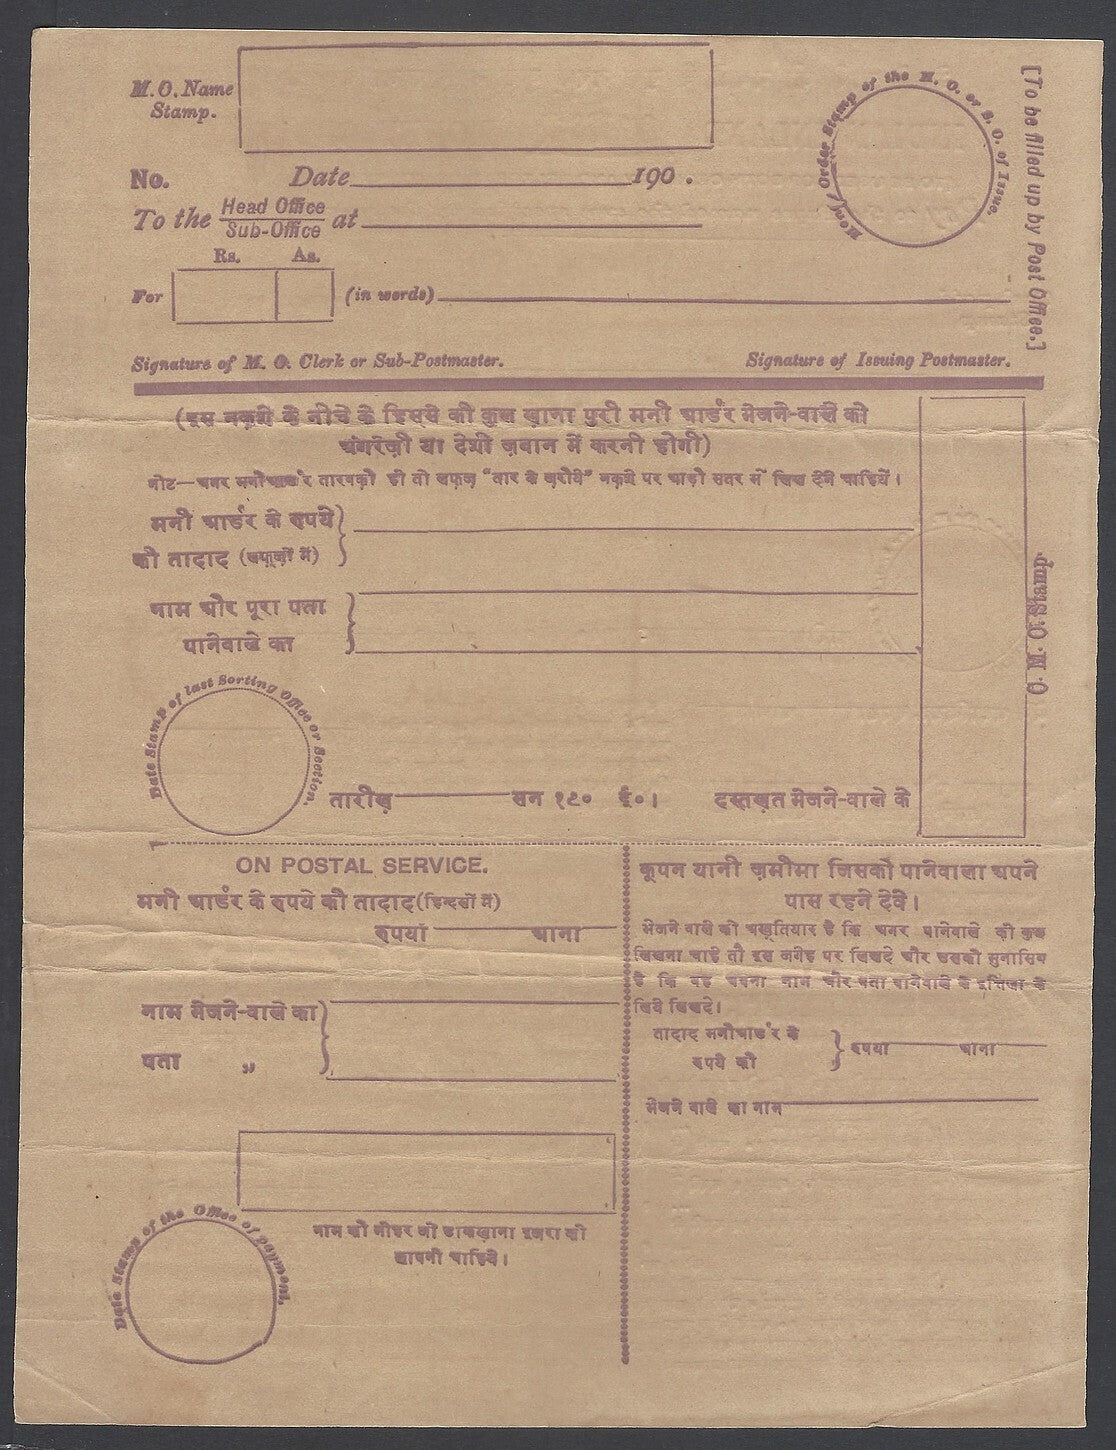 M. O. Name
Stamp.
Money Order Stamp of the H. O. or S. O. of Issue.
[To be filled up by Post Office.]
No. Date 190 .
To the Head Office
Sub-Office at
Rs. As.
For (in words)
Signature of M. O. Clerk or Sub-Postmaster. Signature of Issuing Postmaster.
(इस नकशे के नीचे के हिस्से की कुल ख़ाना पुरी मनी आर्डर भेजने-वाले को
अंगरेज़ी या देशी ज़बान में करनी होगी)
नोट—अगर मनीआर्डर तारका हो तो लफ़ज़ "तार के ज़रीये" नकशे पर आड़ी सतर में लिख देने चाहियें।
मनी आर्डर के रुपये
की तादाद (लफ़ज़ों में)
नाम और पूरा पता
पानेवाले का
O. M. O. Stamp
Date Stamp of last Sorting Office or Section.
तारीख़ सन १९० ई०। दस्तख़त भेजने-वाले के
ON POSTAL SERVICE.
मनी आर्डर के रुपये की तादाद (हिन्दसों में)
रुपया आना
नाम भेजने-वाले का
पता "
नाम की मोहर जो डाकख़ाना इजरा को
छापनी चाहिये।
Date Stamp of the Office of payment.
कूपन यानी ज़मीमा जिसको पानेवाला अपने
पास रहने देवे।
भेजने वाले को अख़्तियार है कि अगर पानेवाले को कुछ
लिखना चाहे तो इस जगह पर लिखदे और उसको मुनासिब
है कि वह अपना नाम और पता पानेवाले के इत्तिला के
लिये लिखदे।
तादाद मनीआर्डर के
रुपये की रुपया आना
भेजने वाले का नाम